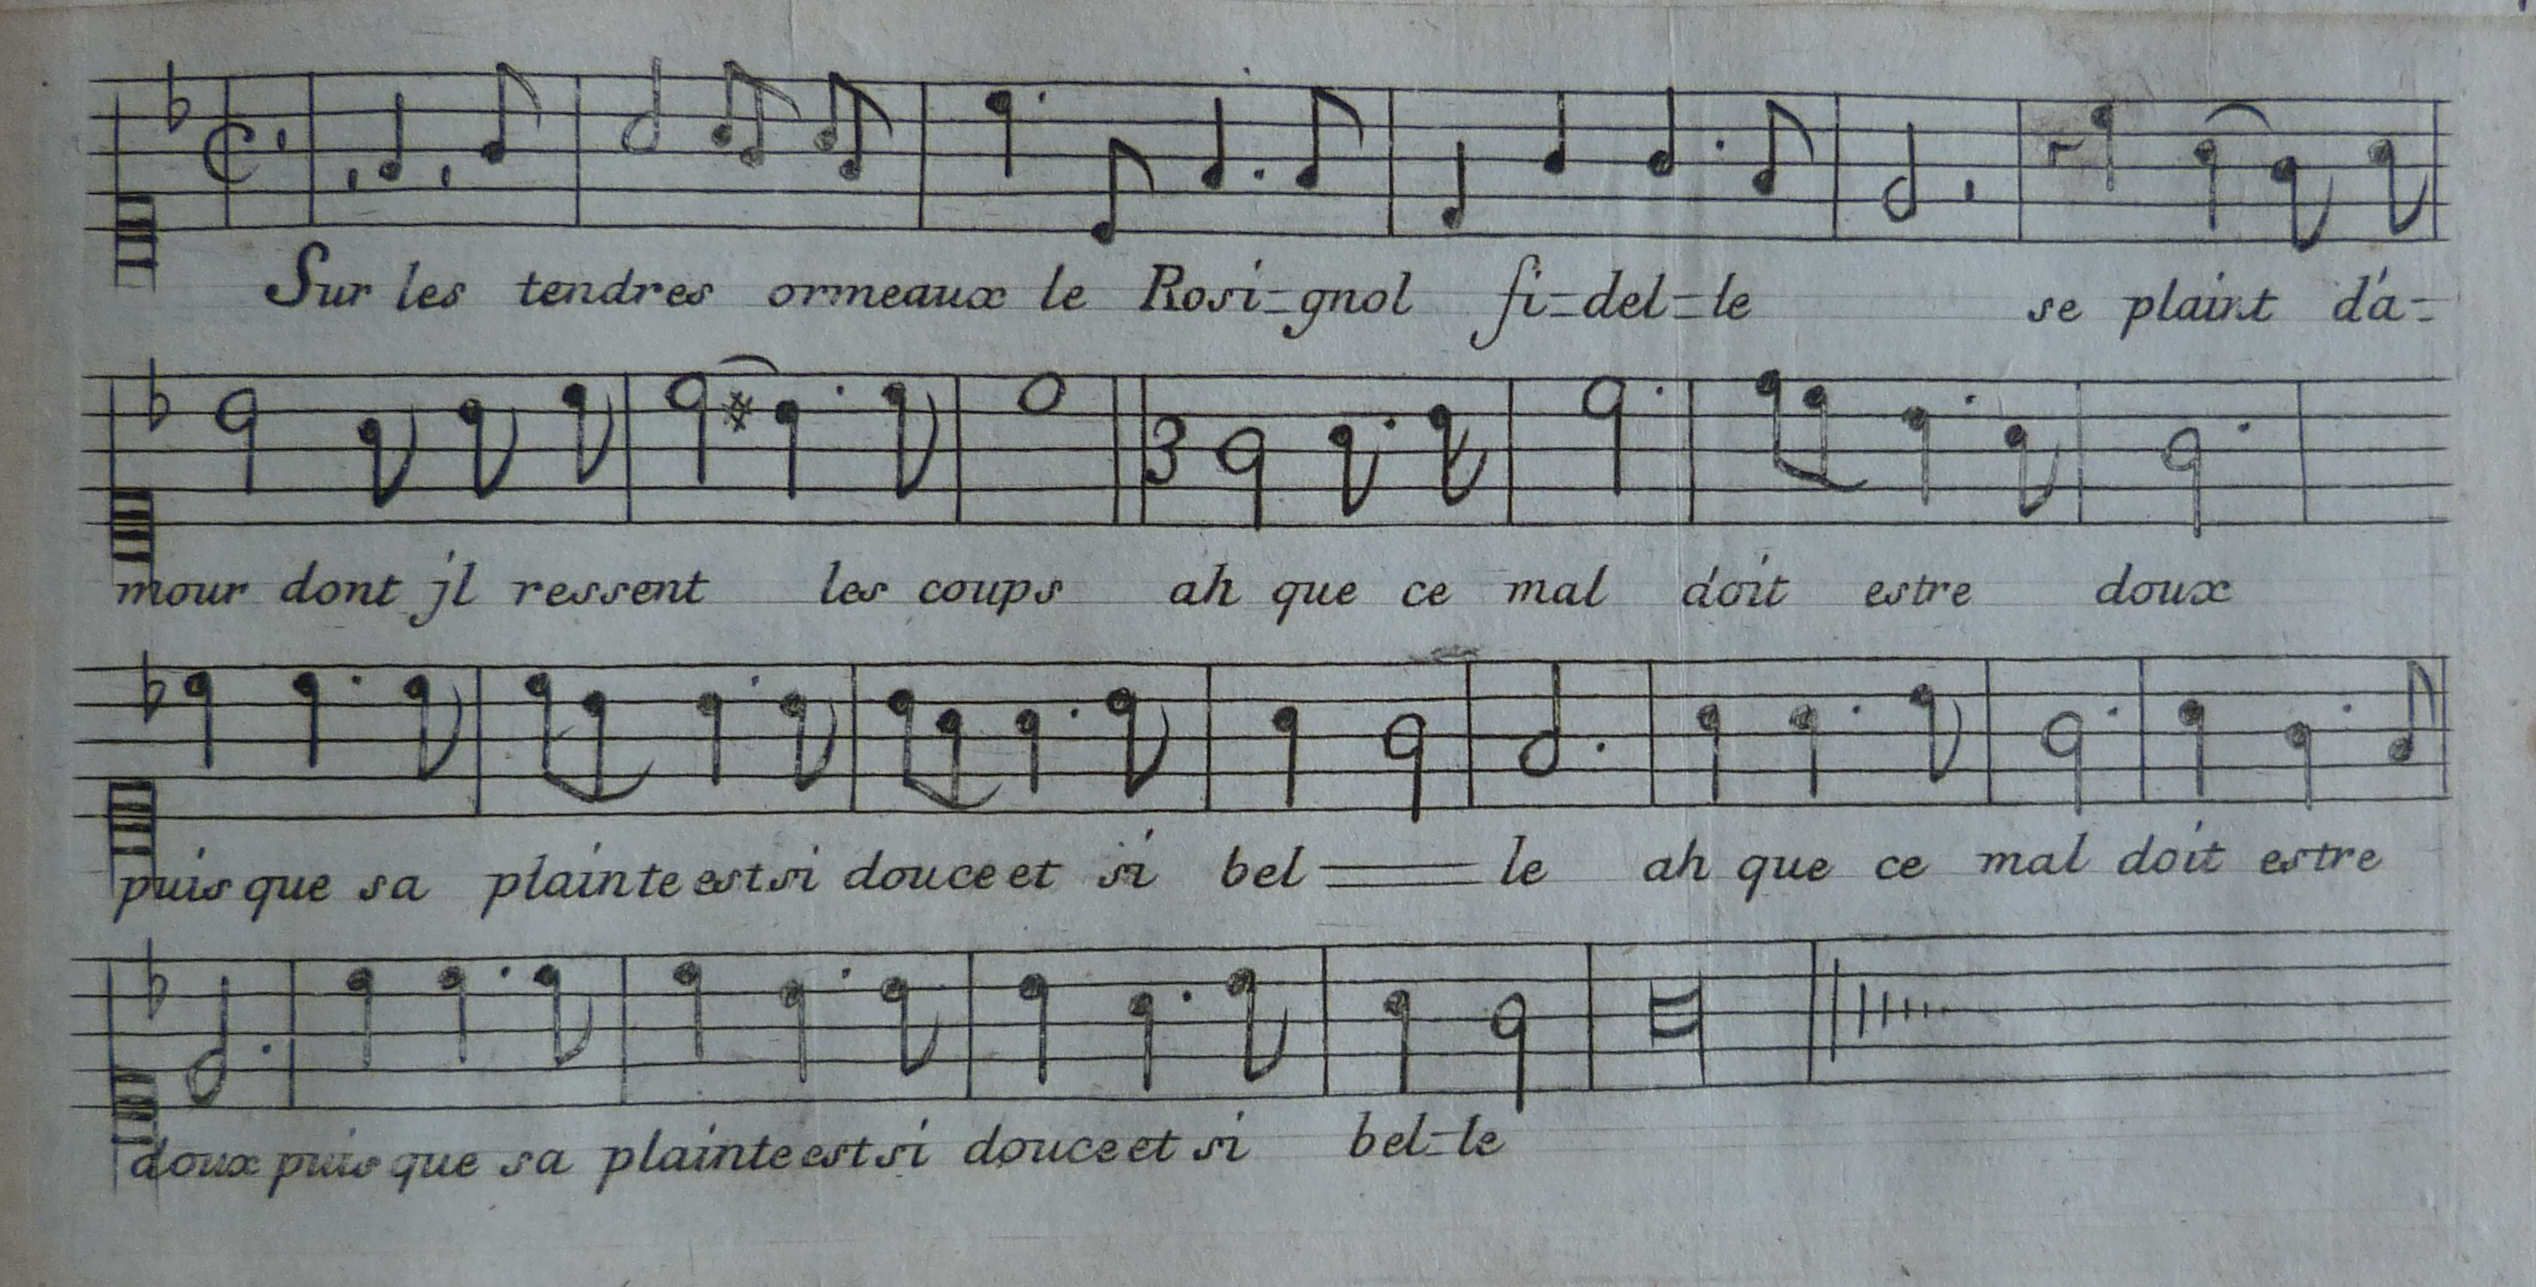 Sur les tendres ormeaux le Rosi=gnol fi=del=le se plaint d'a=
mour dont jl ressent les coups ah que ce mal doit estre doux
puis que sa plainte est si douce et si bel=le ah que ce mal doit estre
doux puis que sa plainte est si douce et si bel=le